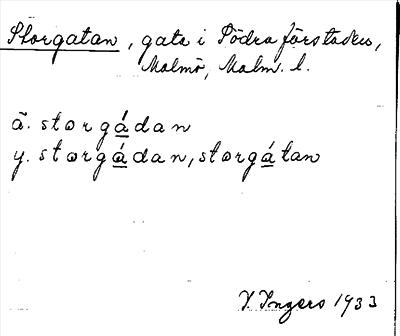 Storgatan, gata i Södra förstaden,
Malmö, Malm. l.
ä. storgádan
y. storgádan, storgátan
I. Ingers 1933